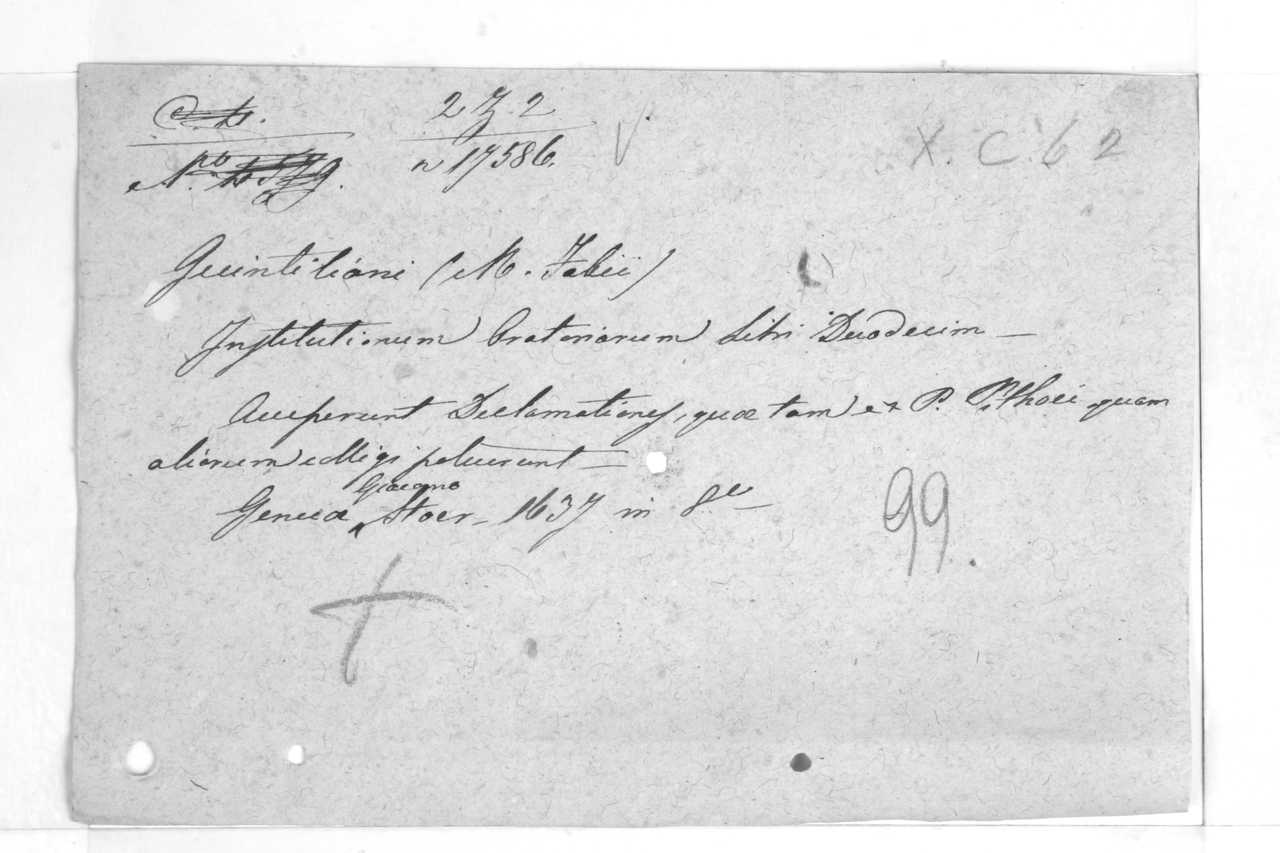 2 Z. 2
V
X. C. 62
n 17586.
Quintiliani (M. Fabii)
Institutionum Oratoriarum Libri Duodecim —
Acceperunt Declamationes, quæ tam ex P. Pithoei quam
aliorum colligi potuerunt —
Giacomo
Genevæ Stoer — 1637 in 8.º —
99.